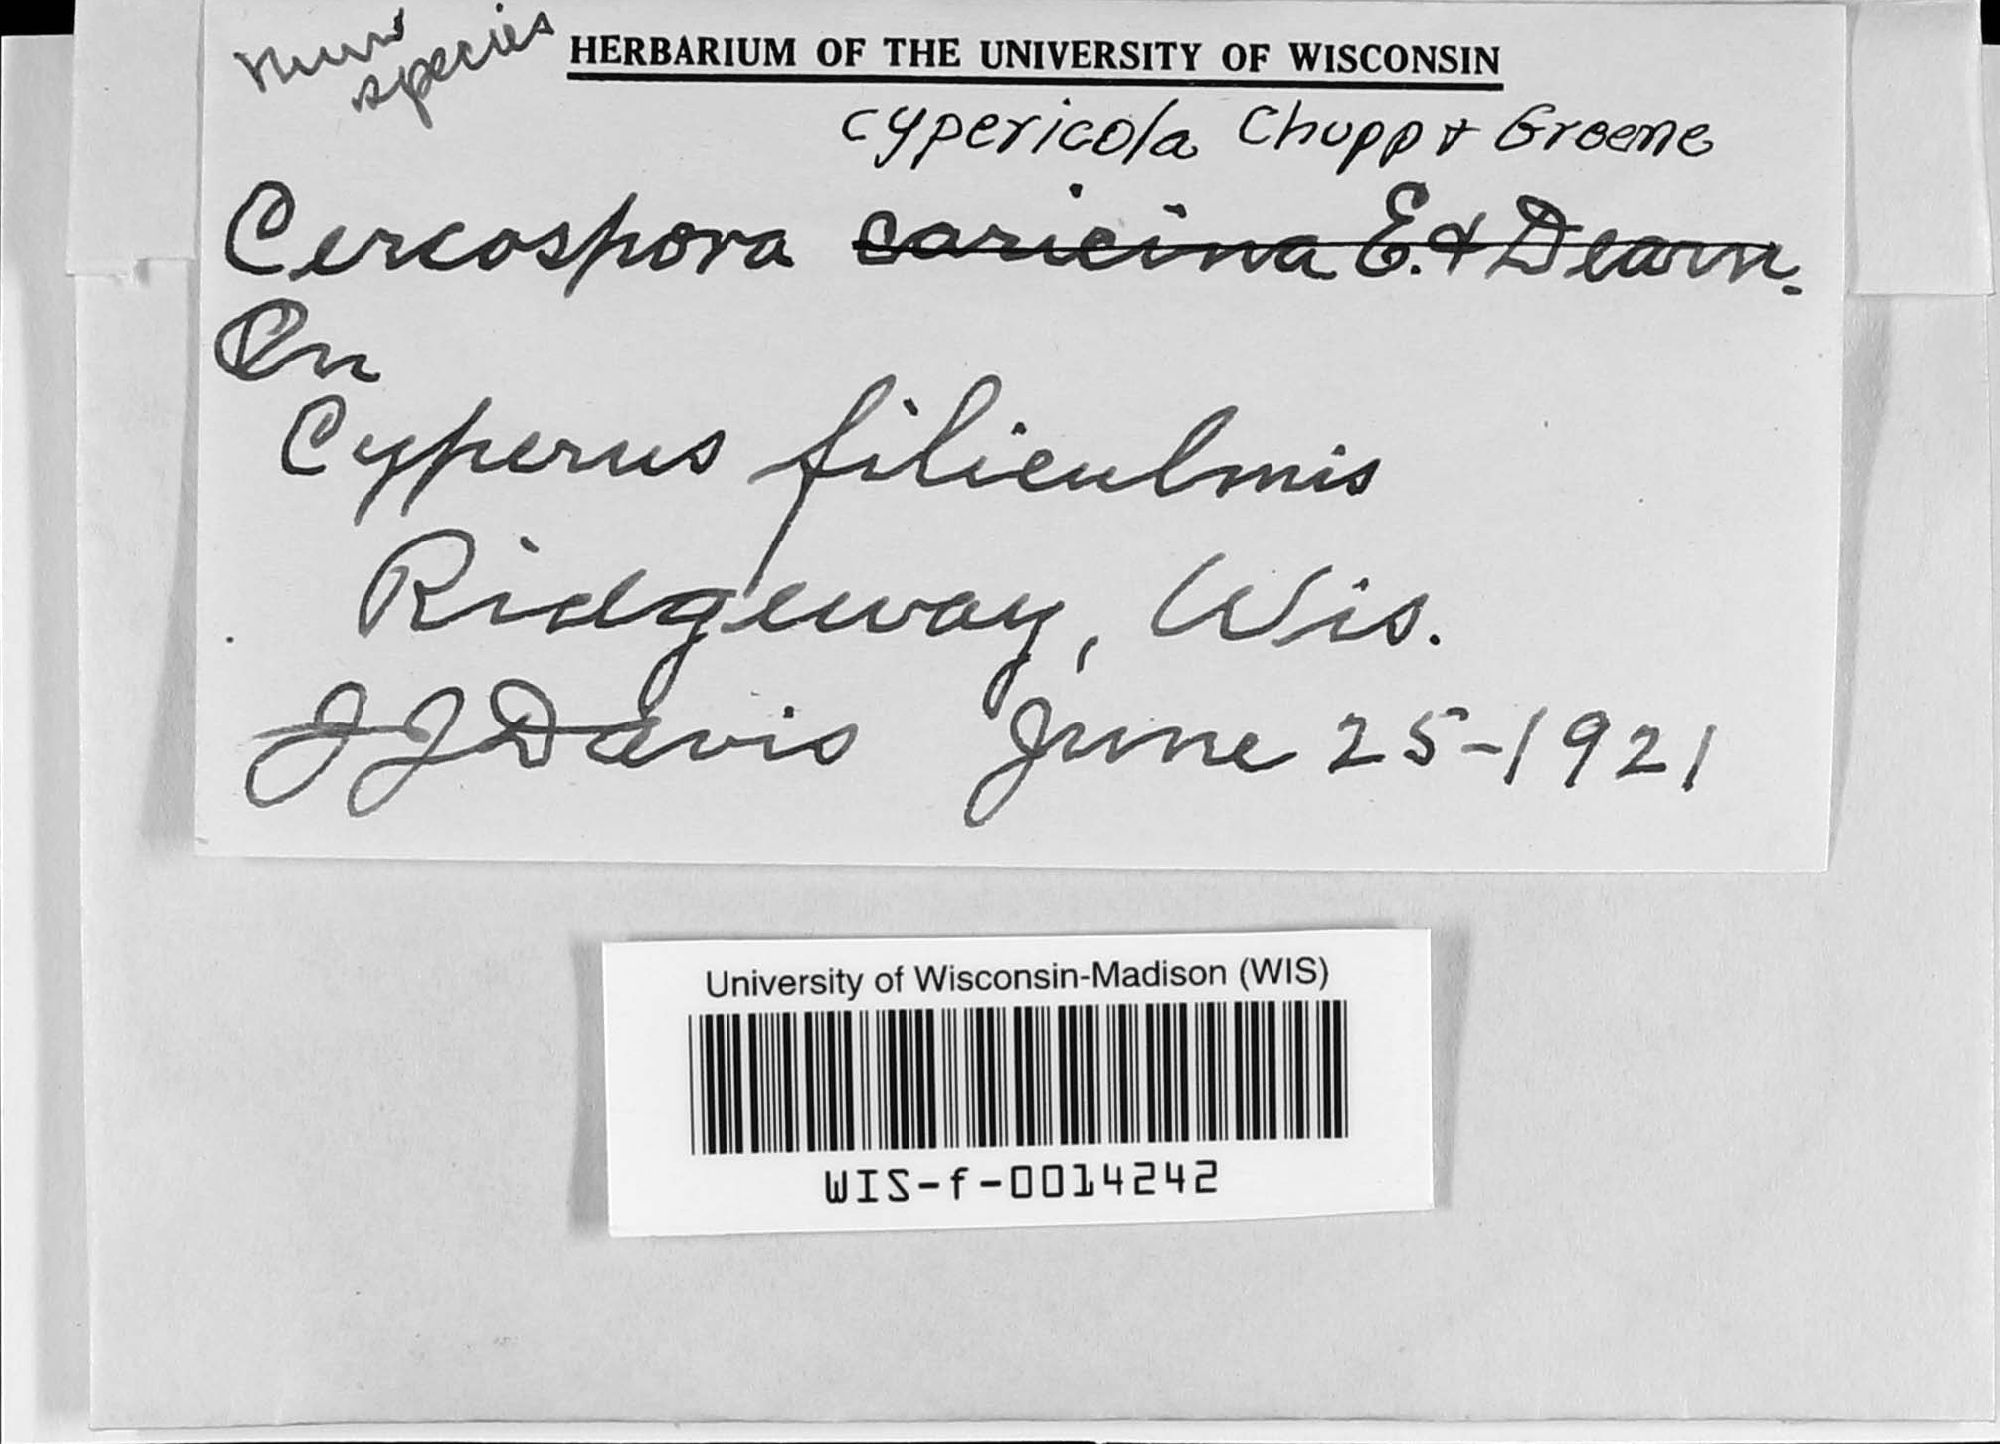 New
species
HERBARIUM OF THE UNIVERSITY OF WISCONSIN
cypericola Chupp & Greene
Cercospora caricina E. & Dearn.
On
Cyperus filiculmis
Ridgeway, Wis.
JJ Davis June 25-1921
University of Wisconsin-Madison (WIS)
WIS-f-0014242